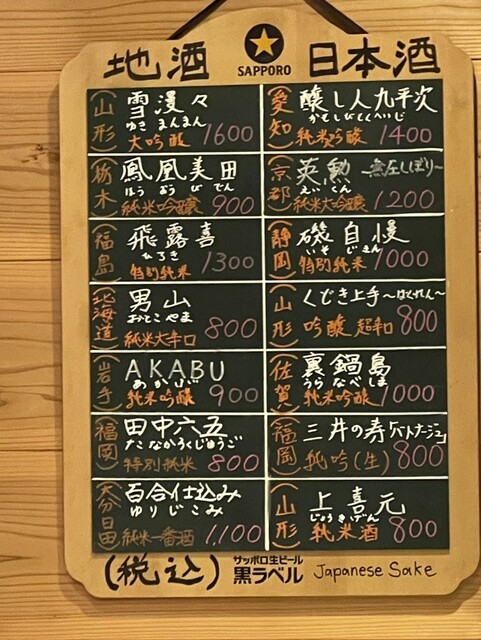 地酒
SAPPORO
日本酒
(山形)
雪漫々
ゆき まんまん
大吟醸 1600
(愛知)
醸し人九平次
かもしびとくへいじ
純米吟醸 1400
(栃木)
鳳凰美田
ほうおうびでん
純米大吟醸 900
(京都)
英勲 ~無圧しぼり~
えいくん
純米大吟醸 1200
(福島)
飛露喜
ひろき
特別純米 1300
(静岡)
磯自慢
いそじまん
特別純米 1000
(北海道)
男山
おとこやま
純米大辛口 800
(山形)
くどき上手~ばくれん~
吟醸 超辛口 800
(岩手)
AKABU
あかぶ
純米吟醸 900
(佐賀)
裏鍋島
うらなべしま
純米吟醸 1000
(福岡)
田中六五
たなかろくじゅうご
特別純米 800
(福岡)
三井の寿
純吟(生) 800
(大分日田)
百合仕込み
ゆりじこみ
純米一番酒 1,100
(山形)
上喜元
じょうきげん
純米酒 800
(税込)
サッポロ生ビール
黒ラベル
Japanese Sake